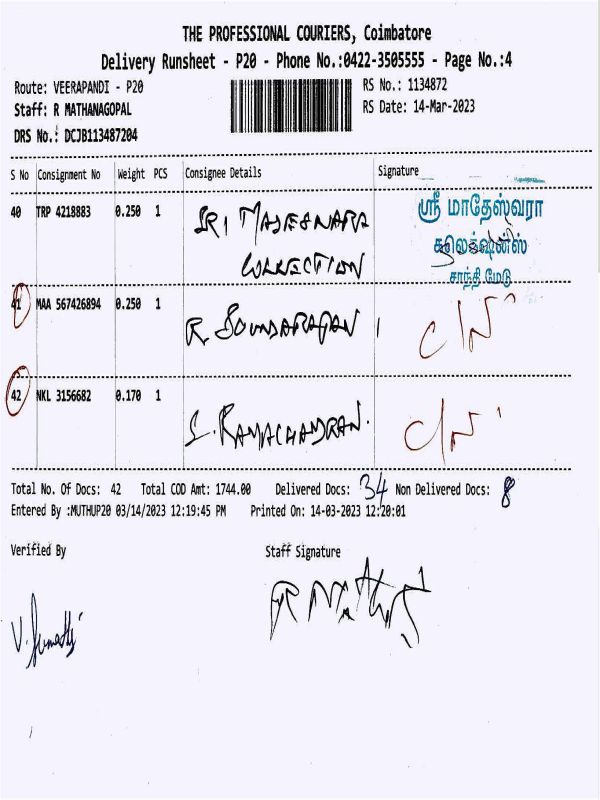 THE PROFESSIONAL COURIERS, Coimbatore
Delivery Runsheet - P20 - Phone No.:0422-3505555 - Page No.:4
Route: VEERAPANDI - P20 RS No.: 1134872
Staff: R MATHANAGOPAL RS Date: 14-Mar-2023
DRS No.: DCJB113487204
S No Consignment No Weight PCS Consignee Details Signature
40 TRP 4218883 0.250 1 SRI MAJESWARA ஸ்ரீ மாதேஸ்வரா
COLLECTION கலெக்ஷன்ஸ்
சாந்தி மேடு
41 MAA 567426894 0.250 1 R. SOUNDARAJAN
42 NKL 3156682 0.170 1 S. RAMACHANDRAN.
Total No. Of Docs: 42 Total COD Amt: 1744.00 Delivered Docs: 34 Non Delivered Docs: 8
Entered By :MUTHUP20 03/14/2023 12:19:45 PM Printed On: 14-03-2023 12:20:01
Verified By Staff Signature